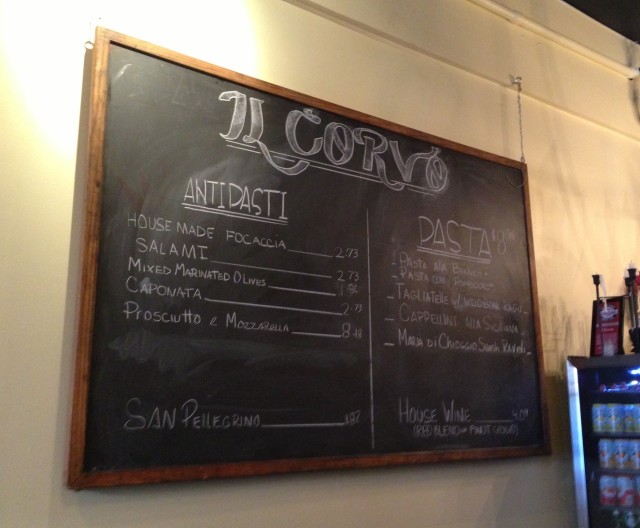 IL CORVO
ANTIPASTI
HOUSE MADE FOCACCIA 2.73
SALAMI 2.73
MIXED MARINATED OLIVES
CAPONATA 2.73
PROSCIUTTO e MOZZARELLA 8.18
SAN PELLEGRINO
PASTA
PASTA ALLA
PASTA CON POMODORO
TAGLIATELLE
CAPPELLINI ALLA SICILIANA
MARIA DI CHIOGGIO SQUASH RAVIOLI
HOUSE WINE 4.09
(RED BLEND or PINOT GRIGIO)